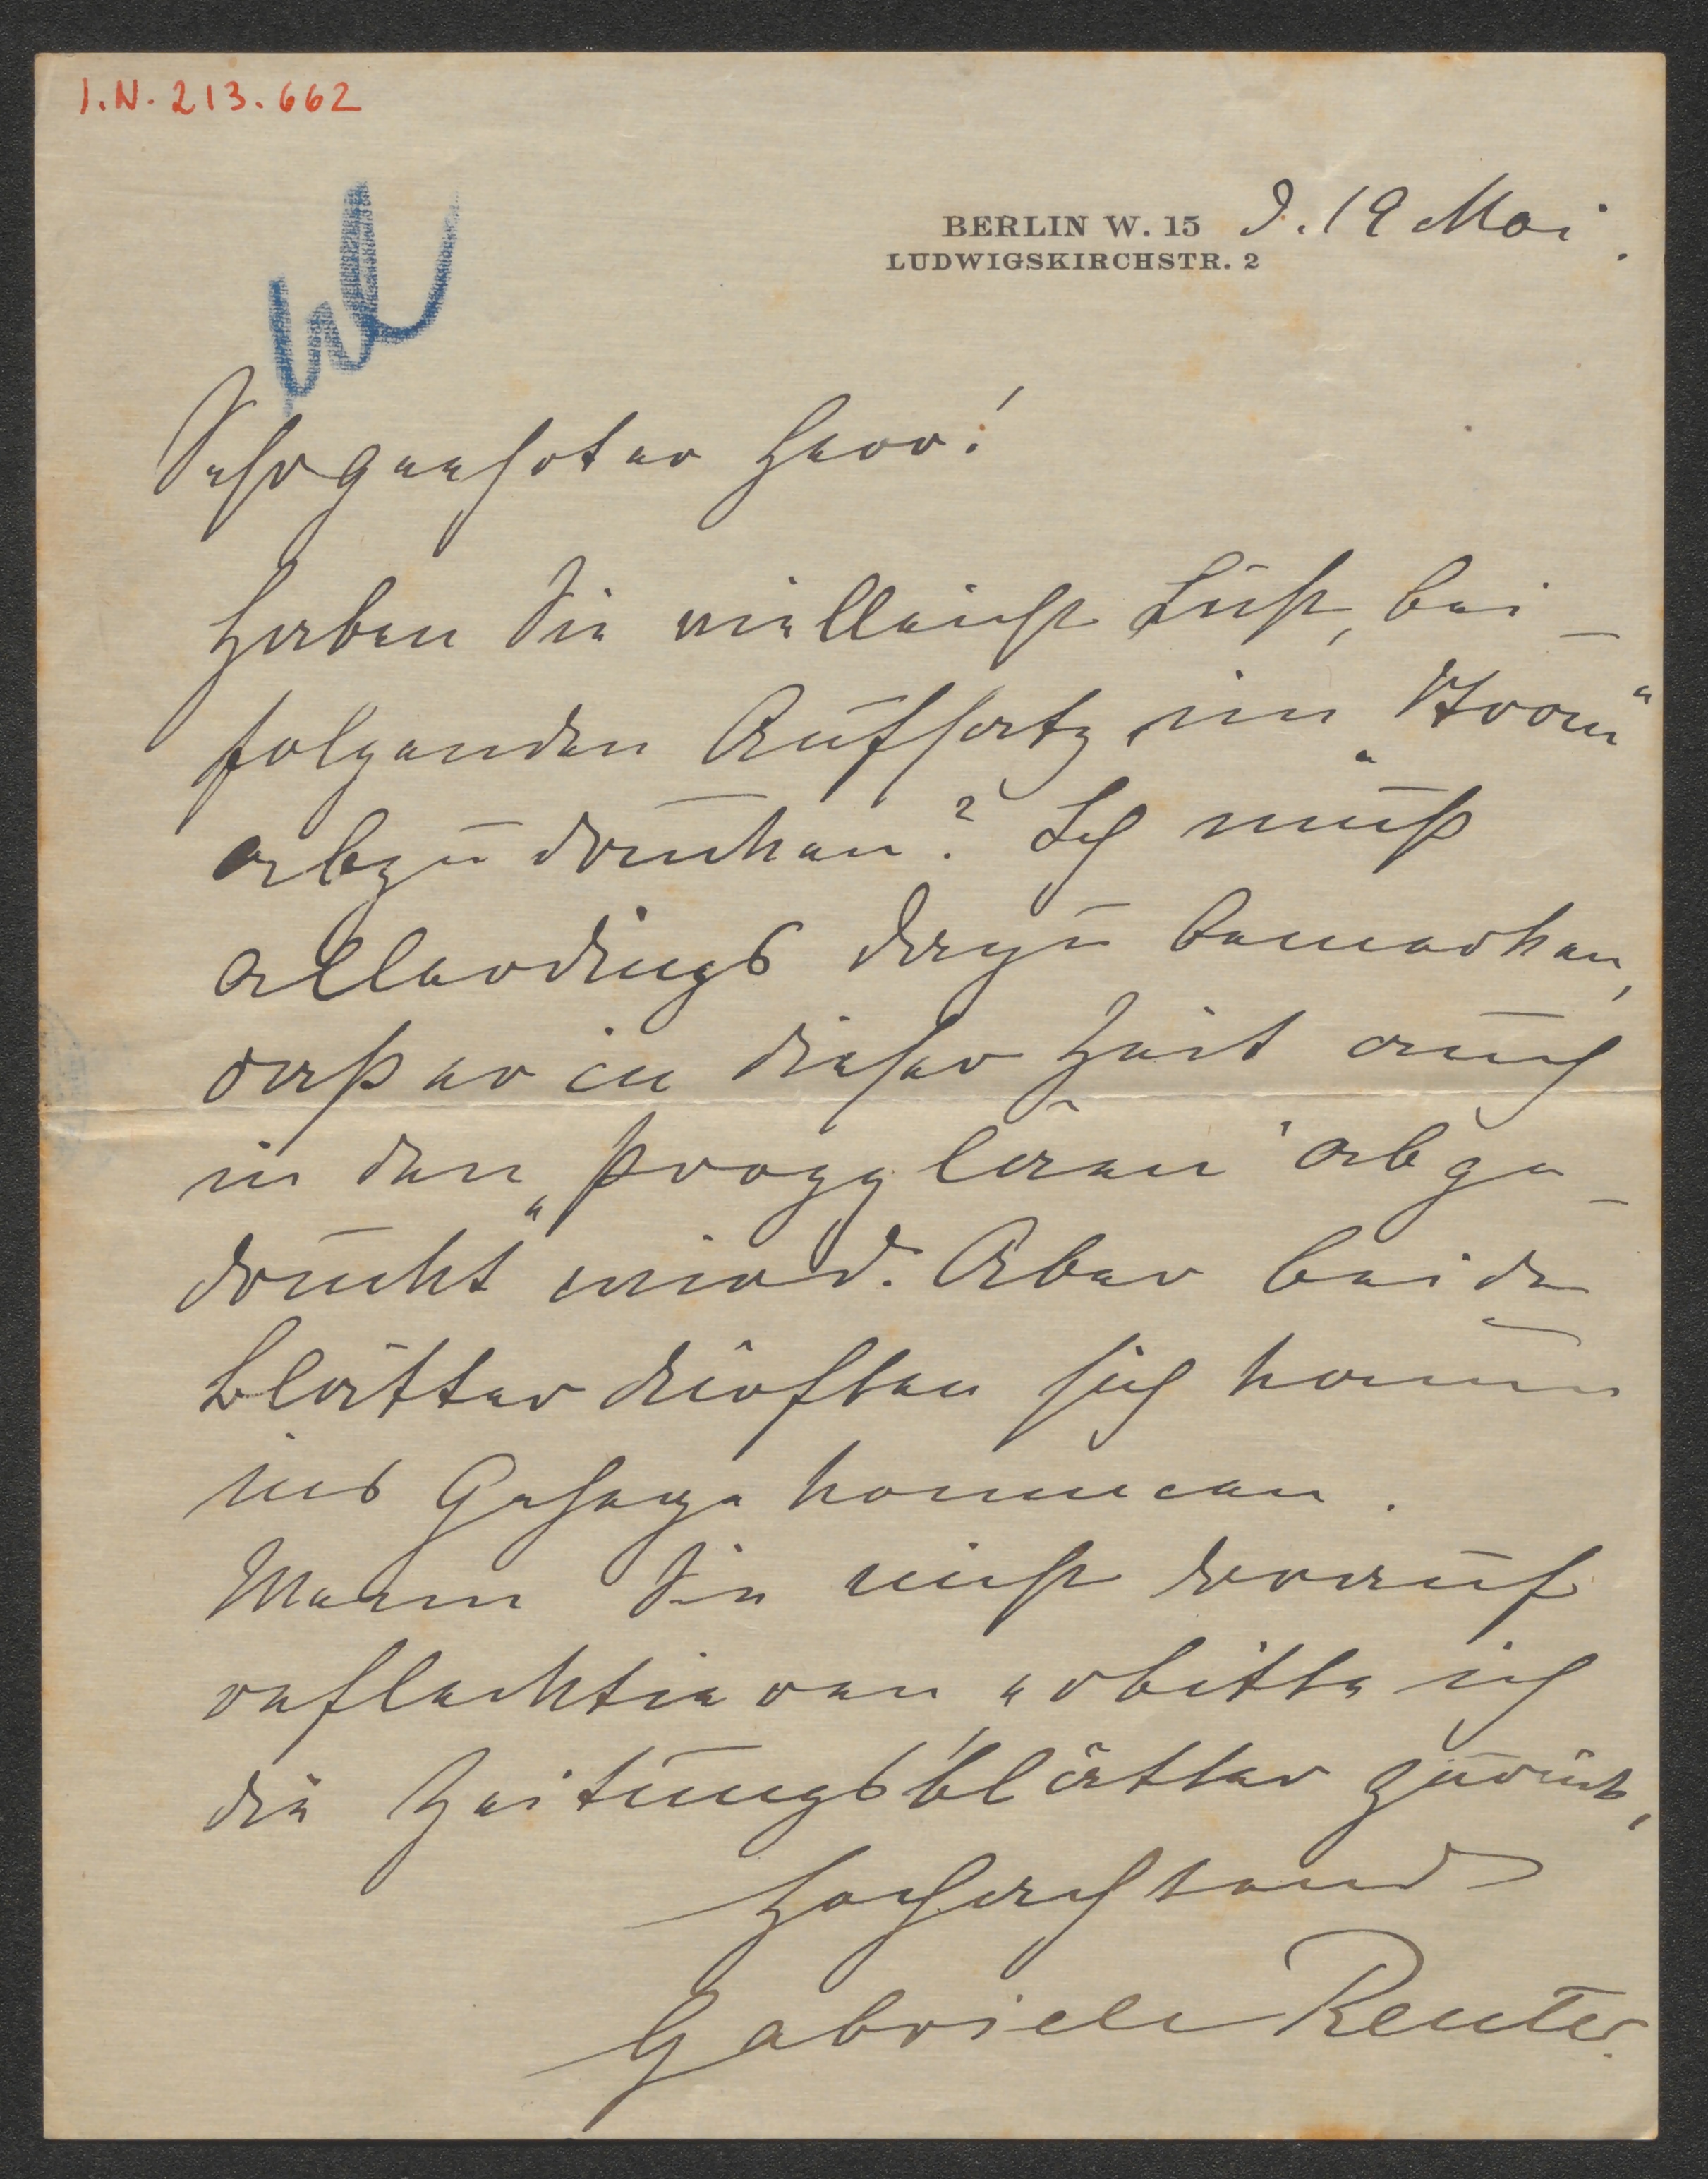 I.N. 213.662
BERLIN W. 15 d. 19 Mai.
LUDWIGSKIRCHSTR. 2
Sehr geehrter Herr!
Haben Sie vielleicht Lust, bei-
folgenden Aufsatz im „Strom“
abzudrucken? Ich muß
allerdings dazu bemerken,
daß er in dieser Zeit auch
in den „Propyläen“ abge-
druckt wird. Aber beide
Blätter dürften sich kaum
ins Gehege kommen.
Wenn Sie nicht darauf
reflektieren, erbitte ich
die Zeitungsblätter zurück,
Hochachtend
Gabriele Reuter.